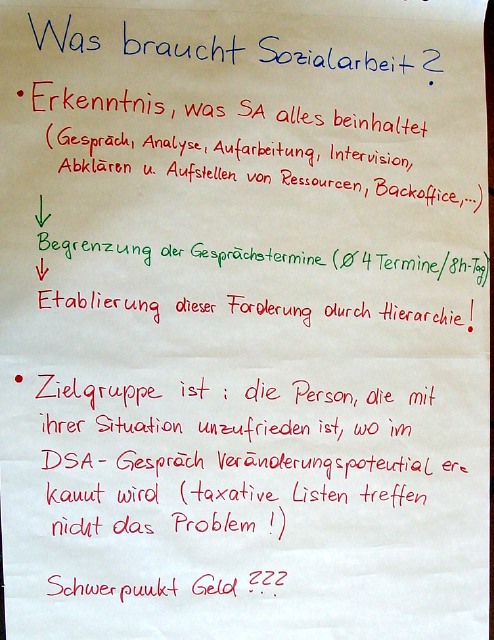 Was braucht Sozialarbeit?
• Erkenntnis, was SA alles beinhaltet
(Gespräch, Analyse, Aufarbeitung, Intervision,
Abklären u. Aufstellen von Ressourcen, Backoffice,...)
↓
Begrenzung der Gesprächstermine (Ø 4 Termine/8h-Tag)
↓
Etablierung dieser Forderung durch Hierarchie!
• Zielgruppe ist: die Person, die mit
ihrer Situation unzufrieden ist, wo im
DSA-Gespräch Veränderungspotential er=
kannt wird (taxative Listen treffen
nicht das Problem!)
Schwerpunkt Geld???